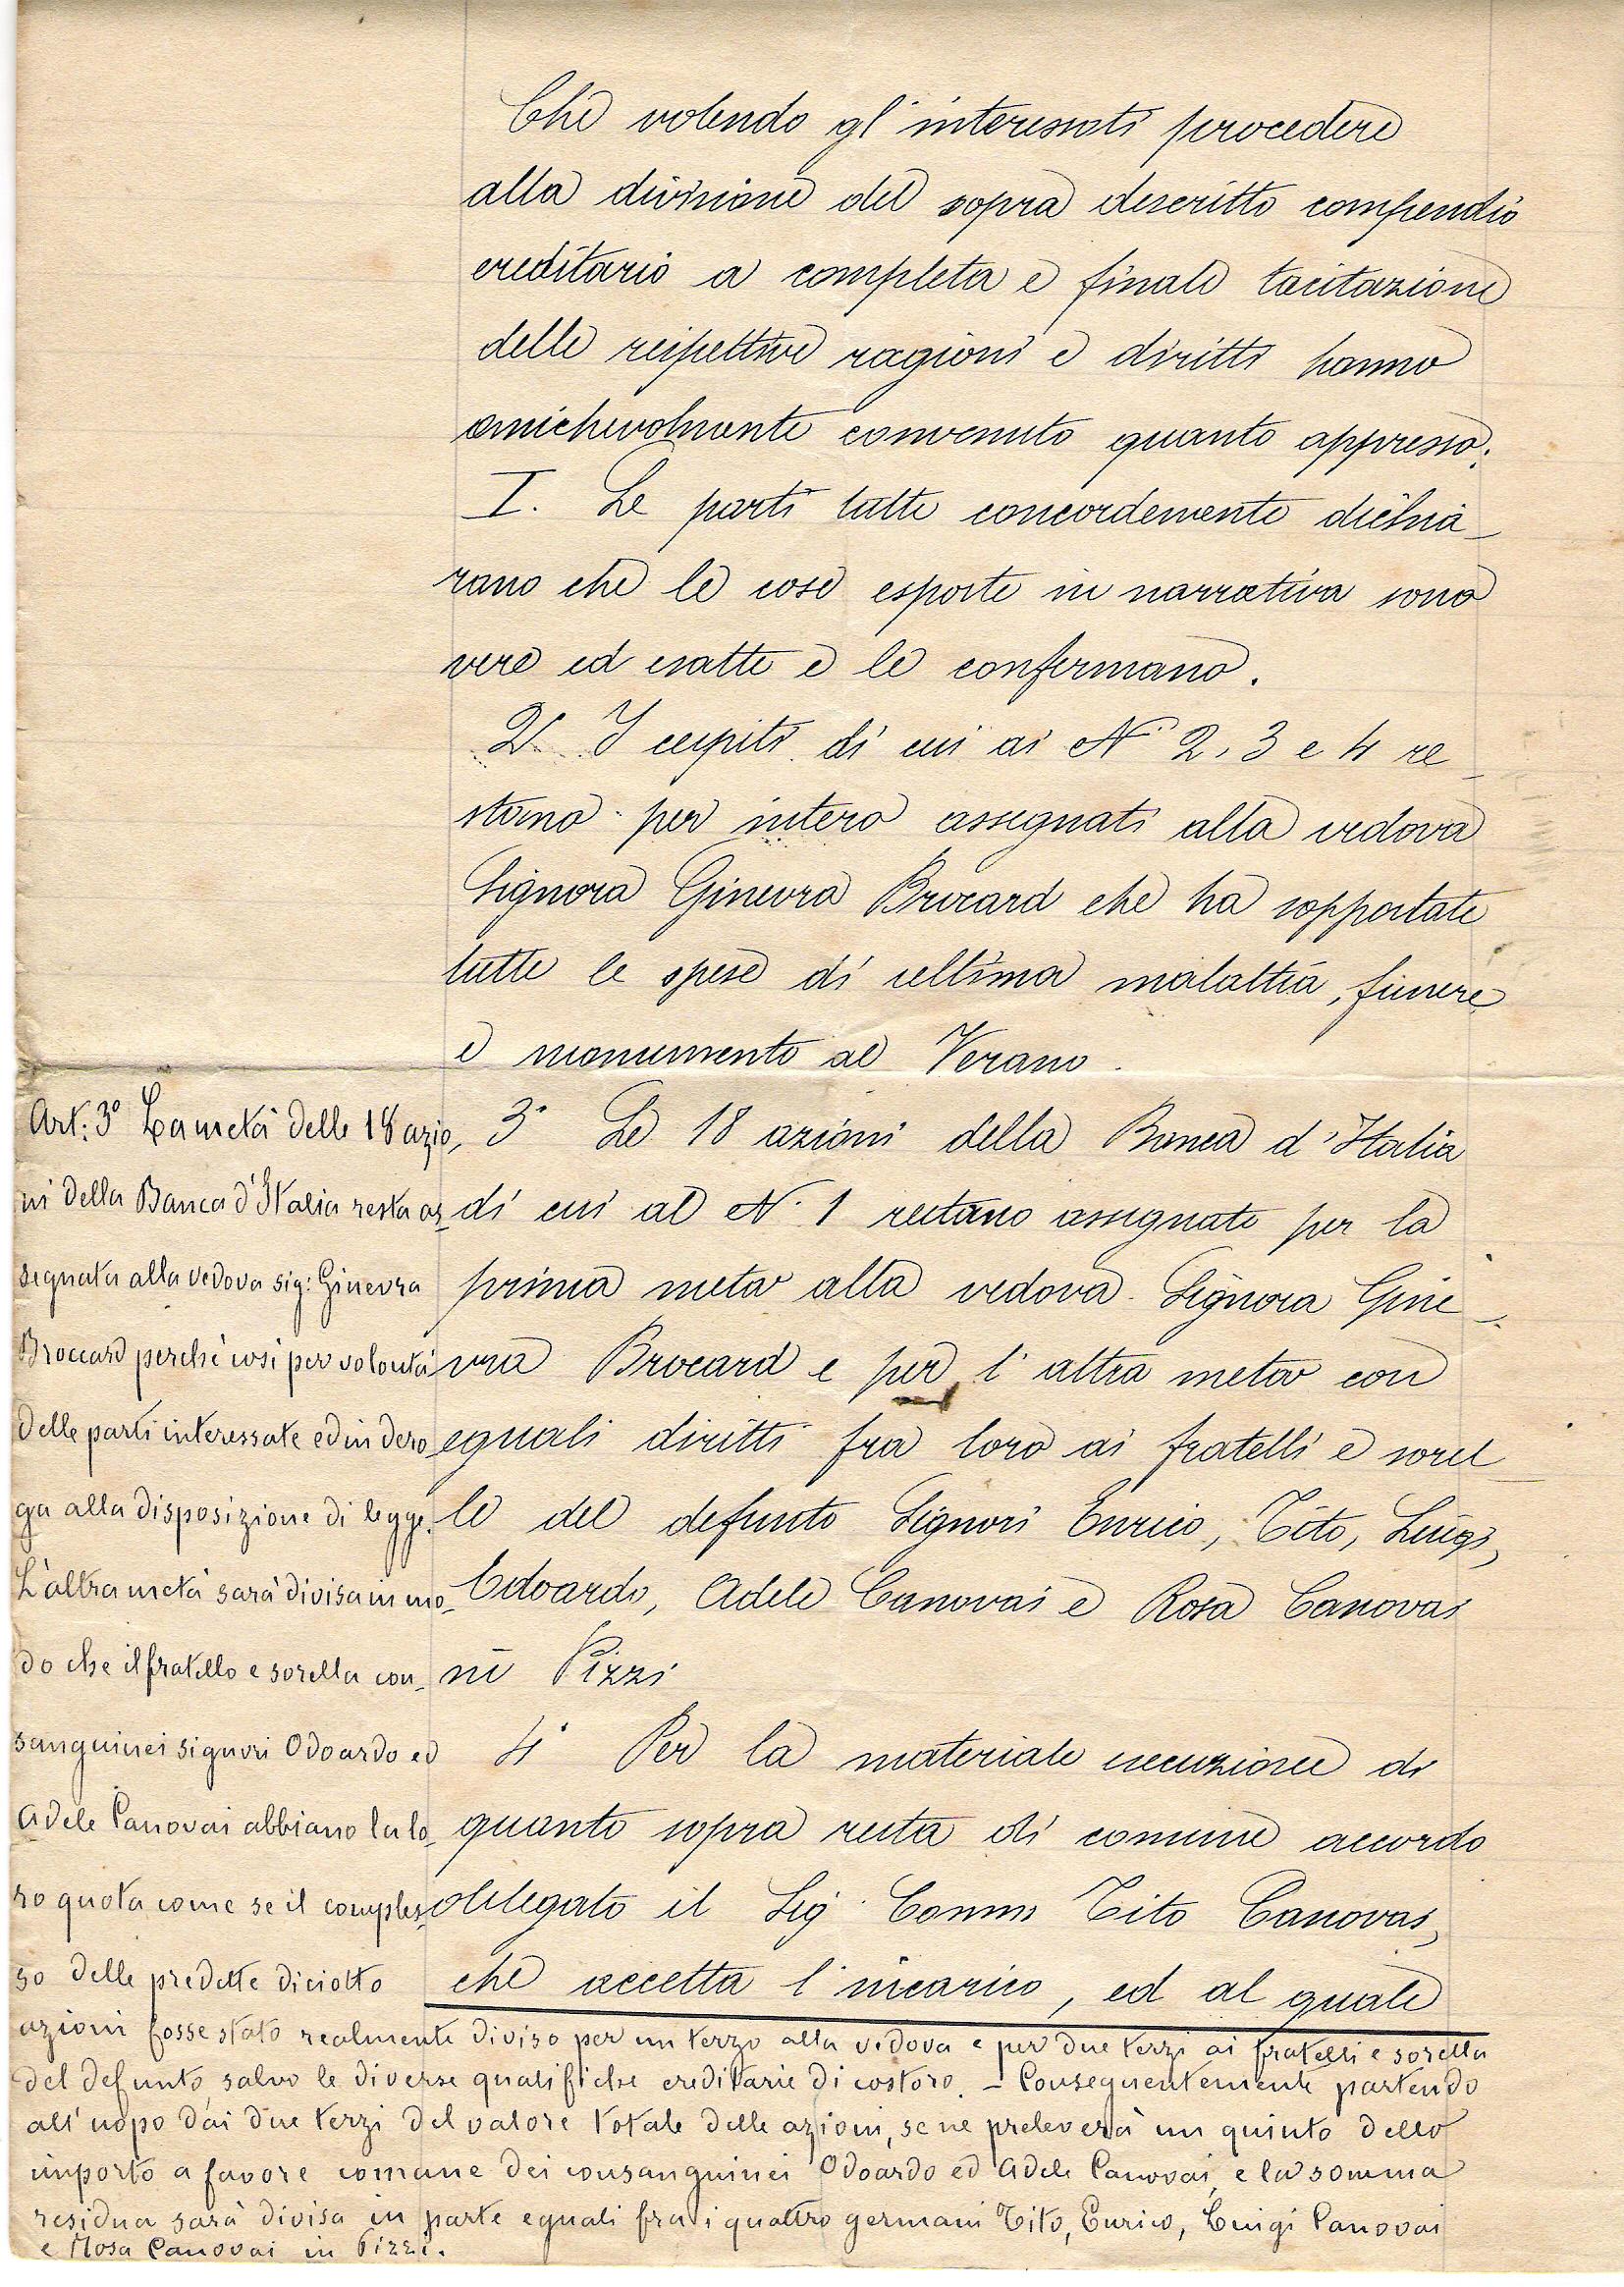 Che volendo gl'interessati procedere
alla divisione del sopra descritto compendio
ereditario a completa e finale tacitazione
delle respettive ragioni e diritti hanno
amichevolmente convenuto quanto appresso:
I. Le parti tutte concordemente dichia-
rano che le cose esposte in narrativa sono
vere ed esatte e le confermano.
2° I cespiti di cui ai N° 2, 3 e 4 re-
stano per intero assegnati alla vedova
Signora Ginevra Brocard che ha sopportate
tutte le spese di ultima malattia, funere
e monumento al Verano.
3° Le 18 azioni della Banca d'Italia
di cui al N. 1 restano assegnate per la
prima metà alla vedova Signora Gine-
vra Brocard e per l'altra metà con
eguali diritti fra loro ai fratelli e sorel-
le del defunto Signori Enrico, Tito, Luigi,
Edoardo, Adele Canovai e Rosa Canovai
in Pizzi
4° Per la materiale esecuzione di
quanto sopra resta di comune accordo
delegato il Sig. Comm Tito Canovai,
che accetta l'incarico, ed al quale
Art: 3° La metà delle 18 azio-
ni della Banca d'Italia resta as-
segnata alla vedova sig: Ginevra
Broccard perchè così per volontà
delle parti interessate ed in dero
ga alla disposizione di legge.
L'altra metà sarà divisa in mo-
do che il fratello e sorella con-
sanguinei signori Odoardo ed
Adele Canovai abbiano la lo-
ro quota come se il comples-
so delle predette diciotto
azioni fosse stato realmente diviso per un terzo alla vedova e per due terzi ai fratelli e sorella
del defunto, salvo le diverse qualifiche ereditarie di costoro. - Conseguentemente partendo
all'uopo dai due terzi del valore totale delle azioni, se ne preleverà un quinto dello
importo a favore comune dei consanguinei Odoardo ed Adele Canovai, e la somma
residua sarà divisa in parte eguali fra i quattro germani Tito, Enrico, Luigi Canovai
e Rosa Canovai in Pizzi.